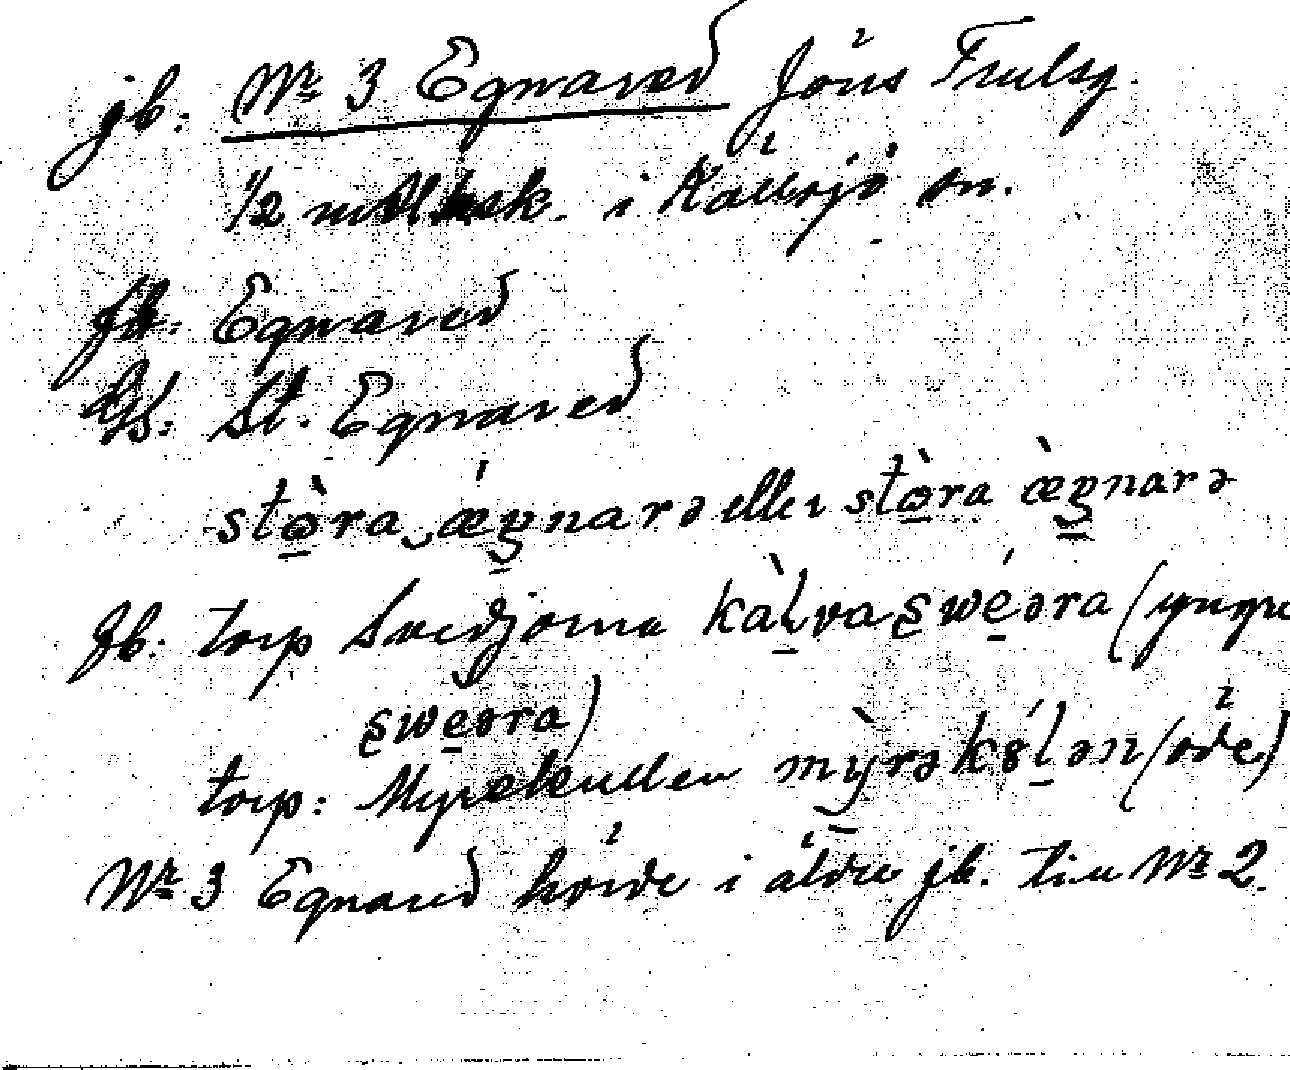 jb: Nr 3 Eqnared Jöns Trulsg.
1/2 mtl sk. i Källsjö sn.
Jb: Eqnared
Gs: St. Eqnared
stò̱ra æ̀gnarə eller stò̱ra æ̀gnarə
Jb: torp Svedjorna kàḻvaswé̱əra (yngre
swe̱əra)
torp: Myrekullen mỳ̱rəkȣ́ḻən (öde)
Nr 3 Eqnared hörde i äldre jb. till Nr 2.